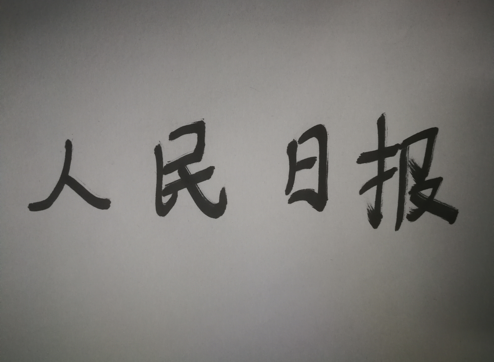 人民日报